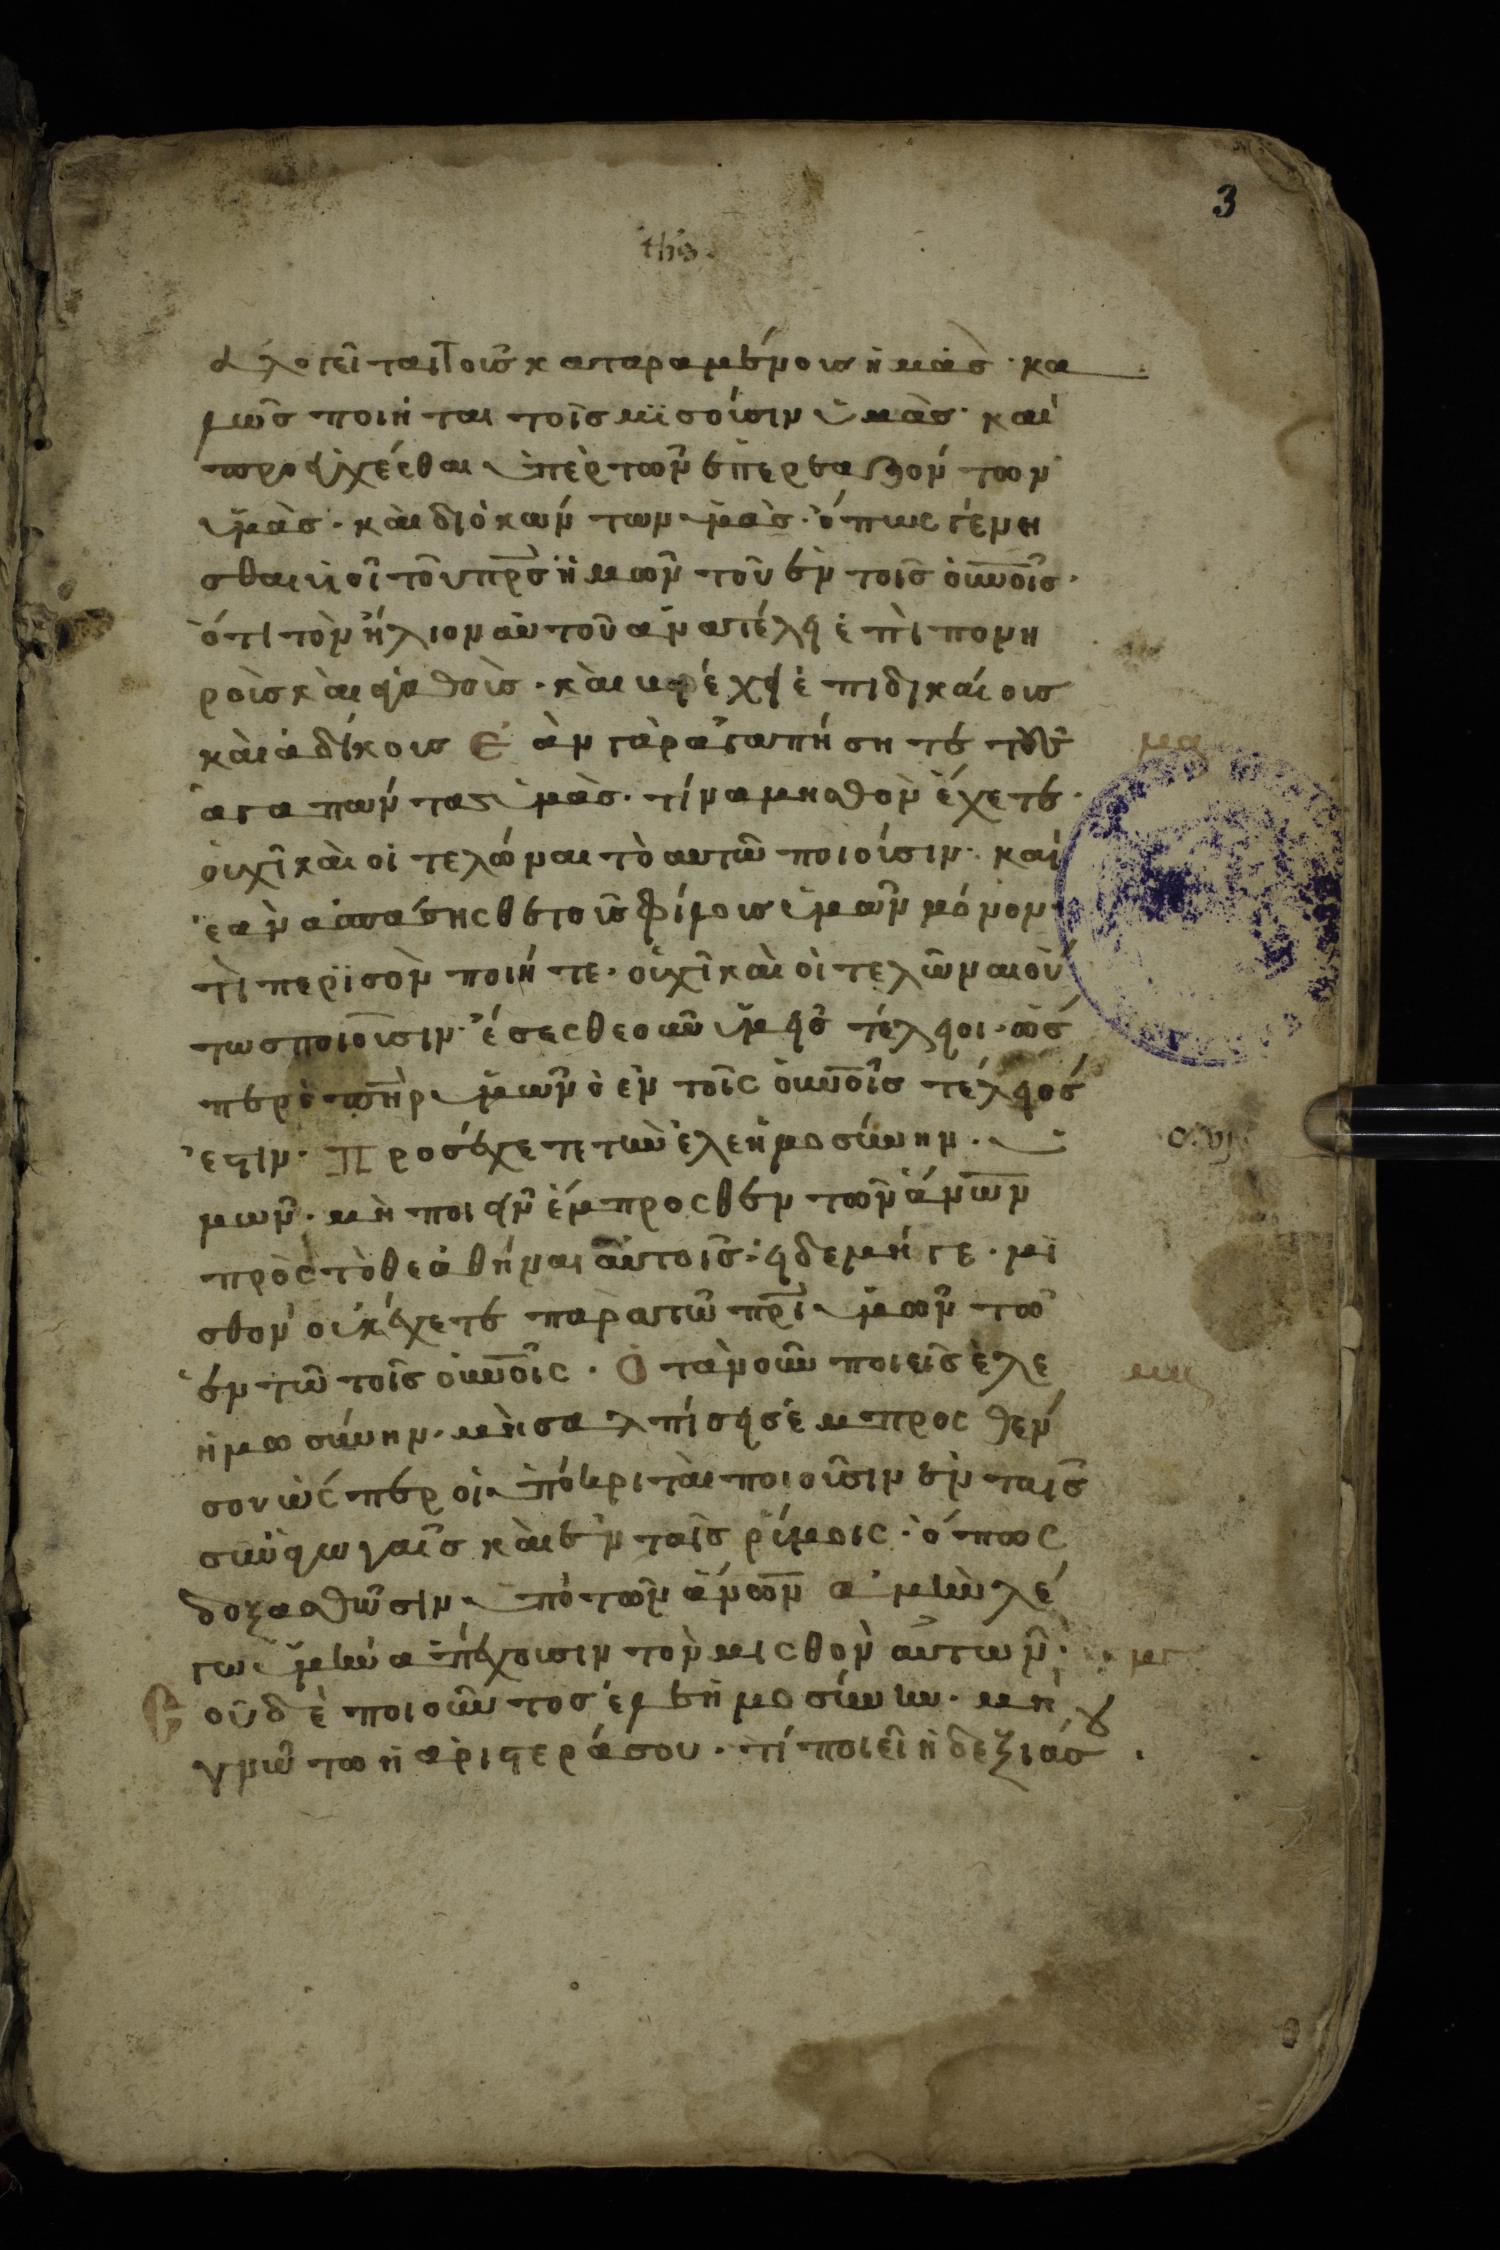 3
εὐλογεῖται τοῖς καταραμένοις ἡμὰς · κα
λῶς ποιή ται τοῖς μϊσοίσιν ὑμὰς · καὶ
προσεύχέσθαι ὑπὲρ τῶν ἐπερεαζόν των
ὑμὰς · καὶ διόκων των ὑμὰς · ὅπως γένη
σθαι ϋοῖ τοῦ πρ̅ς ἡμῶν τοῦ ἐν τοῖς οὐνοῖς ·
ὅτι τὸν ἥλιον αὐτοῦ ἀνατέλει ἐπὶ πονη
ροὶς καὶ ἀγαθοὶς · καὶ βρέχει ἐπὶ δικαίοις
καὶ ἀδίκοις Ἐὰν γὰρ ἀγαπήσητε τοὺς
ἀγαπών τας ὑμὰς · τίνα μησθὸν ἔχετε ·
οὐχῖ καὶ οἱ τελώναι τὸ αυτῶ ποιοίσιν · καὶ
ἐὰν ἀσπάσησθε τοῖς φίλοις ὑμῶν μόνον ·
τὶ περϊσὸν ποιήτε · οὐχῖ καὶ οἱ τελῶναι οὕ
τωσ ποιοῖσιν · ἔσεσθε οὖν ὑμεῖς τέλειοι · ὥσ
περ ὁ πη̅ρ ὑμῶν ὁ ἐν τοῖς οὐνοῖς τέλειός
ἐστιν · Προσέχετε τὴν ἐλεημοσύνην · ὑ
μων · μὴ ποιεῖν ἔμπροσθεν τῶν ἀν̅ων
πρὸς τὸ θεαθήναι αὐτοῖς · εἰδεμήγε · μι
σθὸν οὐκ ἔχετε παρὰ τῶ πρ̅ι ὑμῶν τῶ
ἐν τῶ τοῖς οὐνοῖς · Ὁτὰν οὖν ποιεῖς ἐλε
ημωσύνην · μὴ σαλπίσεις ἔμπροσθέν
σου ὡς περ οἱ ὑπόκριταὶ ποιοῦσιν ἐν ταῖς
συναγωγαῖς καὶ ἐν ταῖς ρύμαις · ὅπως
δοξασθῶσιν ὑπὸ τῶν ἀν̅ων ἀμὴν λέ
γω ὑμὴν ἀπέχουσιν τὸν μισθὸν αὐτῶν ·
Σοῦ δὲ ποιοῦντος ἐλεημοσύνην · μὴ
γνῶτω ἡ ἀριστερά σου · τί ποιεῖ ἡ δεξιάς